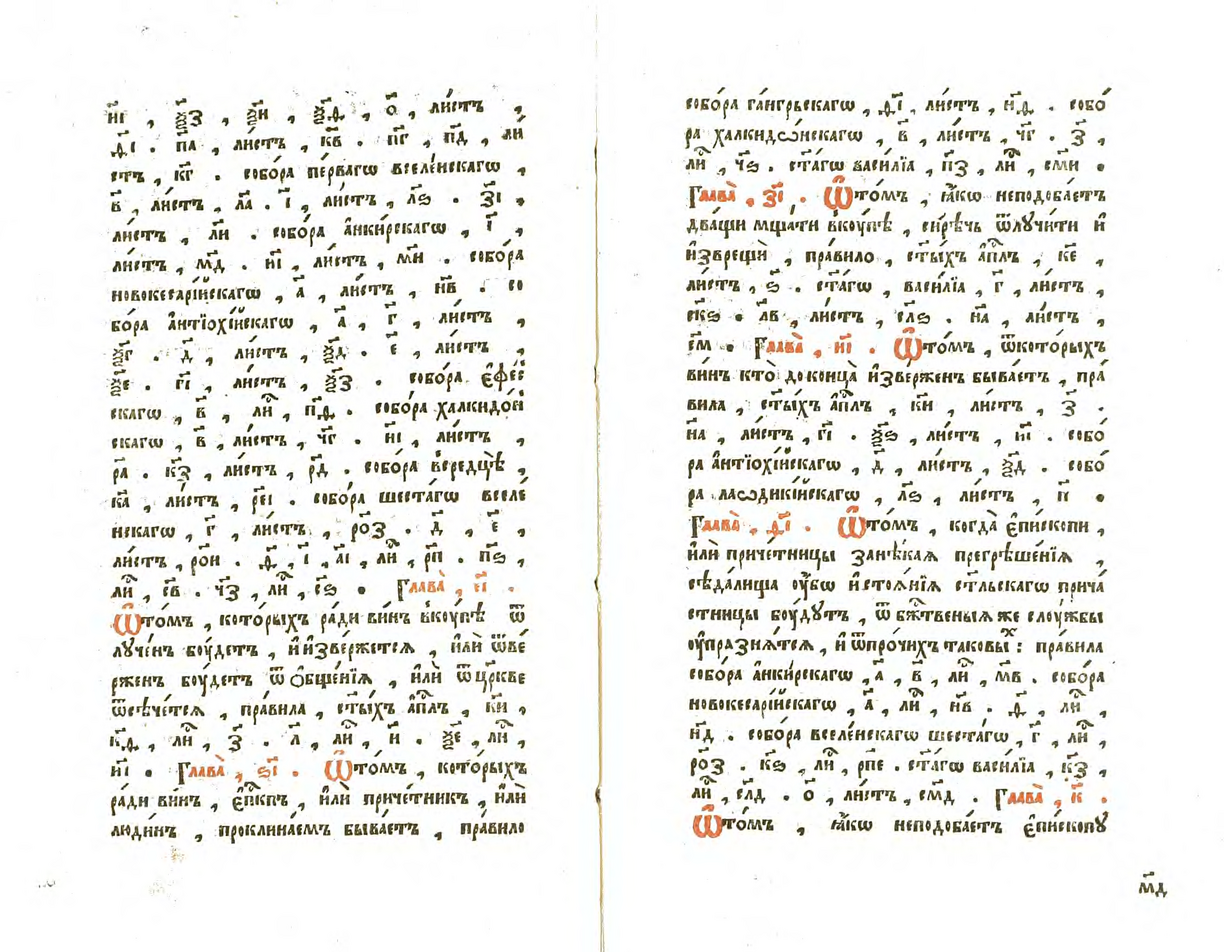 н҃і , ѯ҃з , ѯ҃и , ѯ҃ѳ , о҃ , ли́стъ ,
ѳ҃і . п҃а , ли́стъ , к҃в . п҃г , п҃д , ли́
стъ , к҃г . собо́ра пе́рвагѡ вселе́нскагѡ ,
в҃ , ли́стъ , л҃а . і҃ , ли́стъ , л҃ѕ . з҃і ,
ли́стъ , л҃и . собо́ра а҆нки́рскагѡ , і҃ ,
ли́стъ , м҃д . н҃і , ли́стъ , м҃и . собо́ра
новокесарі́йскагѡ , а҃ , ли́стъ , н҃в . со
бо́ра а҆нтїохі́йскагѡ , а҃ , г҃ , ли́стъ ,
ѯ҃г . д҃ , ли́стъ , ѯ҃д . е҃ , ли́стъ ,
ѯ҃е . г҃і , ли́стъ , ѯ҃з . собо́ра є҆фе́с
скагѡ , в҃ , ли́ , п҃ѳ . собо́ра халкидо́н
скагѡ , в҃ , ли́стъ , ч҃г . и҃і , ли́стъ ,
р҃а . к҃з , ли́стъ , р҃д . собо́ра вередцѣ̀ ,
к҃а , ли́стъ , р҃еі . собо́ра шеста́гѡ вселе́
нскагѡ , г҃ , ли́стъ , р҃оз . д҃ , е҃ ,
ли́стъ , р҃ои . ѳ҃ , і҃ , а҃і , ли́ , р҃п . п҃ѕ ,
ли́ , с҃в . ч҃з , ли́ , с҃ѕ . Глава̀ , е҃і .
Ѿто́мъ , кото́рыхъ ра́ди ви́нъ вкꙋ́пѣ ѿ
лꙋче́нъ бꙋ́детъ , и҆и҆зве́ржется , и҆лѝ ѿве́
рженъ бꙋ́детъ ѿ ѻ҆бще́нїѧ , и҆лѝ ѿцр҃кве
ѿсѣче́тсѧ , пра́вила , ст҃ы́хъ а҆пⷭ҇лъ , к҃и ,
к҃ѳ , ли́ , з҃ . л҃ , ли́ , и҃ . ѯ҃е , ли́ ,
н҃і . Глава̀ , ѕ҃і . Ѿто́мъ , кото́рыхъ
ра́ди ви́нъ , є҆пⷭ҇кпъ , и҆лѝ приче́тникъ , и҆лѝ
лю́динъ , проклина́емъ быва́етъ , пра́вило
собо́ра га́нгрьскагѡ , ѳ҃і , ли́стъ , н҃ѳ . собо́
ра халкидѡ́нскагѡ , в҃ , ли́стъ , ч҃г . з҃ ,
ли́ , ч҃ѕ . ст҃а́гѡ васи́лїа , п҃з , ли́ , см҃и .
Глава̀ , з҃і . Ѿто́мъ , ꙗ҆́кѡ неподоба́етъ
два́щи мща́ти вкꙋ́пѣ , си́рѣчь ѿлꙋчи́ти и҆
и҆зврещѝ , пра́вило , ст҃ы́хъ а҆пⷭ҇лъ , к҃е ,
ли́стъ , ѕ҃ . ст҃а́гѡ , васи́лїа , г҃ , ли́стъ ,
ск҃ѕ . л҃в , ли́стъ , сл҃ѕ . н҃а , ли́стъ ,
с҃м . Глава̀ , и҃і . Ѿто́мъ , ѿкото́рыхъ
ви́нъ кто̀ доконца̀ и҆зве́рженъ быва́етъ , пра́
вила , ст҃ы́хъ а҆пⷭ҇лъ , к҃и , ли́стъ , з҃ .
н҃а , ли́стъ , г҃і . ѯ҃ѕ , ли́стъ , и҃і . собо́
ра а҆нтїохі́йскагѡ , д҃ , ли́стъ , ѯ҃д . собо́
ра лаѡдикі́йскагѡ , л҃ѕ , ли́стъ , п҃ .
Глава̀ , ѳ҃і . Ѿто́мъ , когда̀ є҆пи́скопи ,
и҆лѝ приче́тницы занѣ́каѧ прегрѣше́нїѧ ,
сѣда́лища ᲂу҆́бѡ и҆стоѧ́нїѧ ст҃льскагѡ прича́
стницы бꙋ́дꙋтъ , ѿ бжⷭ҇твеныѧ же слꙋ́жбы
ᲂу҆празнѧ́тсѧ , и҆ ѿпро́чихъ таковы́хъ : пра́вила
собо́ра а҆нки́рскагѡ , а҃ , в҃ , ли́ , м҃в . собо́ра
новокесарі́йскагѡ , а҃ , ли́ , н҃в . ѳ҃ , ли́ ,
н҃д . собо́ра вселе́нскагѡ шеста́гѡ , г҃ , ли́ ,
р҃оз . к҃ѕ , ли́ , р҃пе . ст҃а́гѡ васи́лїа , к҃з ,
ли́ , сл҃д . о҃ , ли́стъ , см҃д . Глава̀ , к҃ .
Ѿто́мъ , ꙗ҆́кѡ неподоба́етъ є҆пи́скопꙋ
м҃д